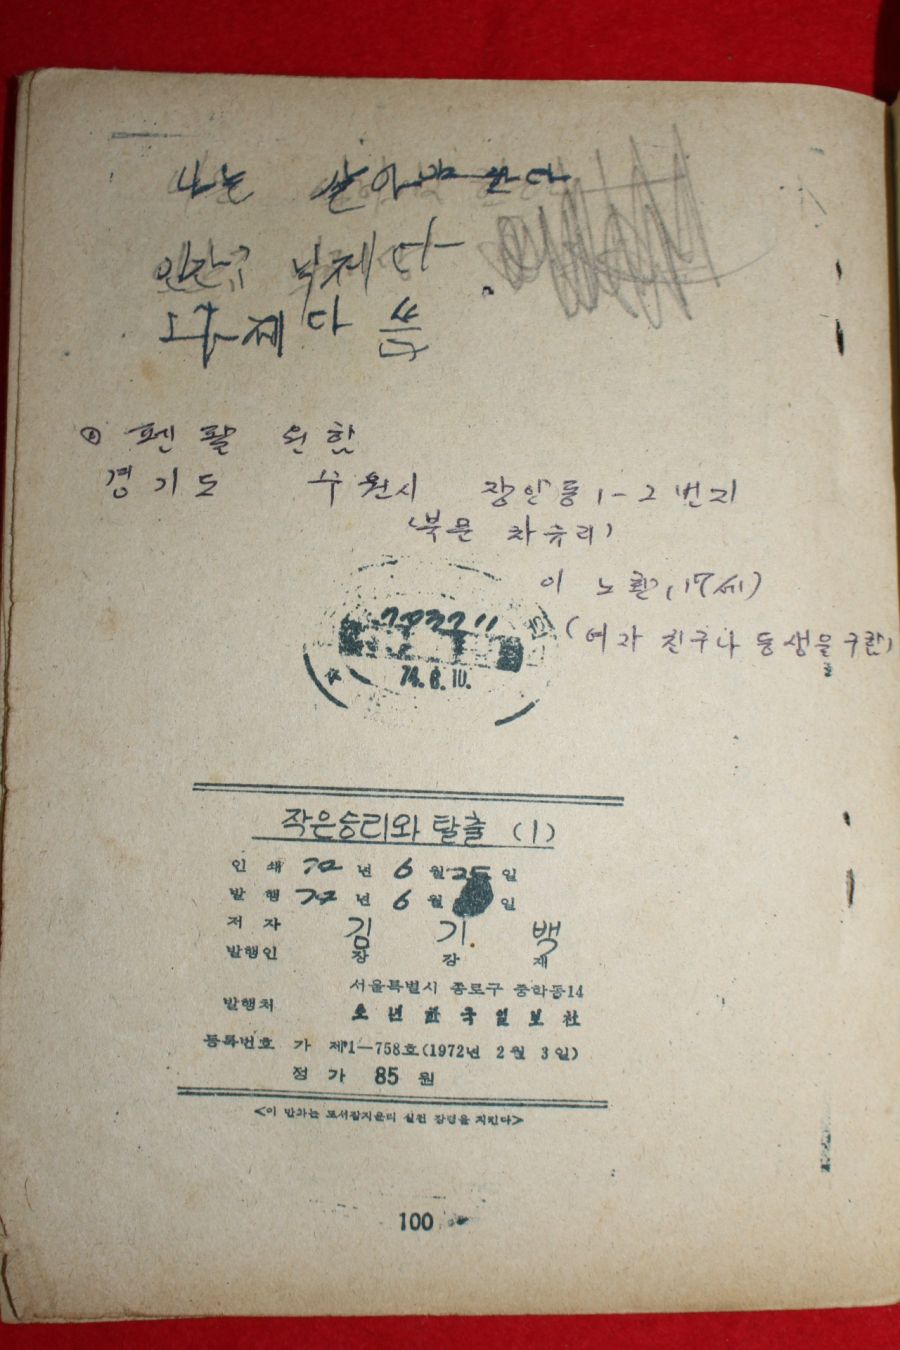 나는 살아야 한다
낙제다
낙제다 씀
펜팔 원함
경기도 수원시 장안동 1-2 번지
(북문 차유리)
이 노환 (17세)
(여자 친구나 동생을 구함)
74.6.10.
작은승리와 탈출 (1)
인쇄 72년 6월 25일
발행 72년 6월 일
저자 김기백
발행인 장강재
서울특별시 종로구 중학동14
발행처 소년한국일보社
등록번호 가 제1—758호(1972년 2월 3일)
정가 85원
<이 만화는 도서잡지윤리 실천 강령을 지킨다>
100